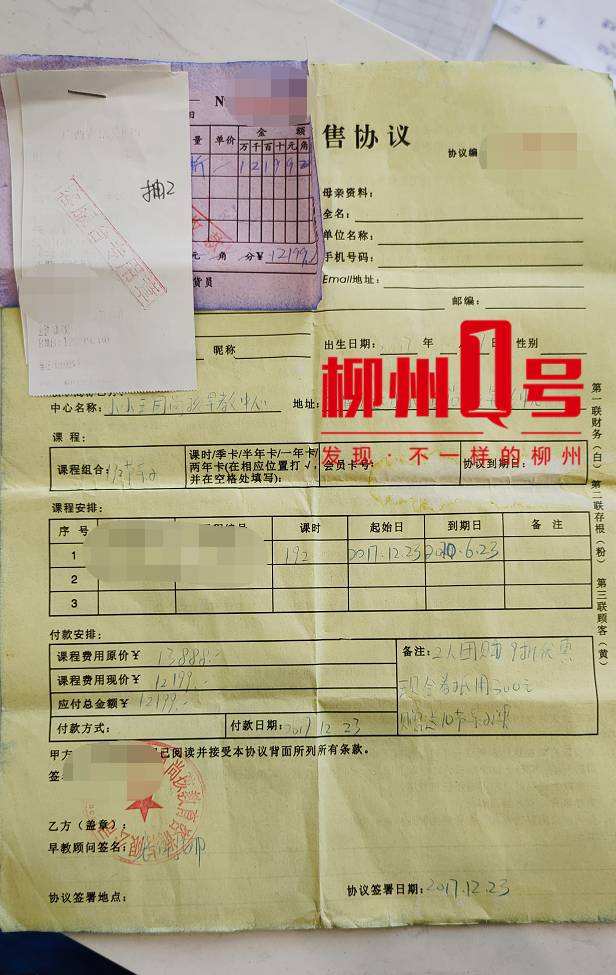 N
售协议
协议编
量 单价 金 额
万 千 百 十 元 角
1 2 1 9 9 2
元 角 分¥ 12199
货员
抽2
母亲资料：
全名：
单位名称：
手机号码：
Email地址：
邮编：
昵称 出生日期： 2017 年 日 性别
柳州1号
发现·不一样的柳州
中心名称： 地址：
课 程：
课程组合：
课时/季卡/半年卡/一年卡/
两年卡(在相应位置打√，
并在空格处填写)：
会员卡号：
协议到期日：
课程安排：
序 号 课时 起始日 到期日 备 注
1 192 2017.12.23 2020.6.23
2
3
付款安排：
课程费用原价¥ 13888.-
课程费用现价¥ 12199.-
应付总金额¥ 12199.-
付款方式： 付款日期： 2017.12.23
备注：2人团购9折优惠
现金券抵用300元
赠送10节
甲方 已阅读并接受本协议背面所列所有条款。
签
乙方（盖章）：
早教顾问签名：
协议签署地点： 协议签署日期：2017.12.23
第一联财务（白） 第二联存根（粉） 第三联顾客（黄）